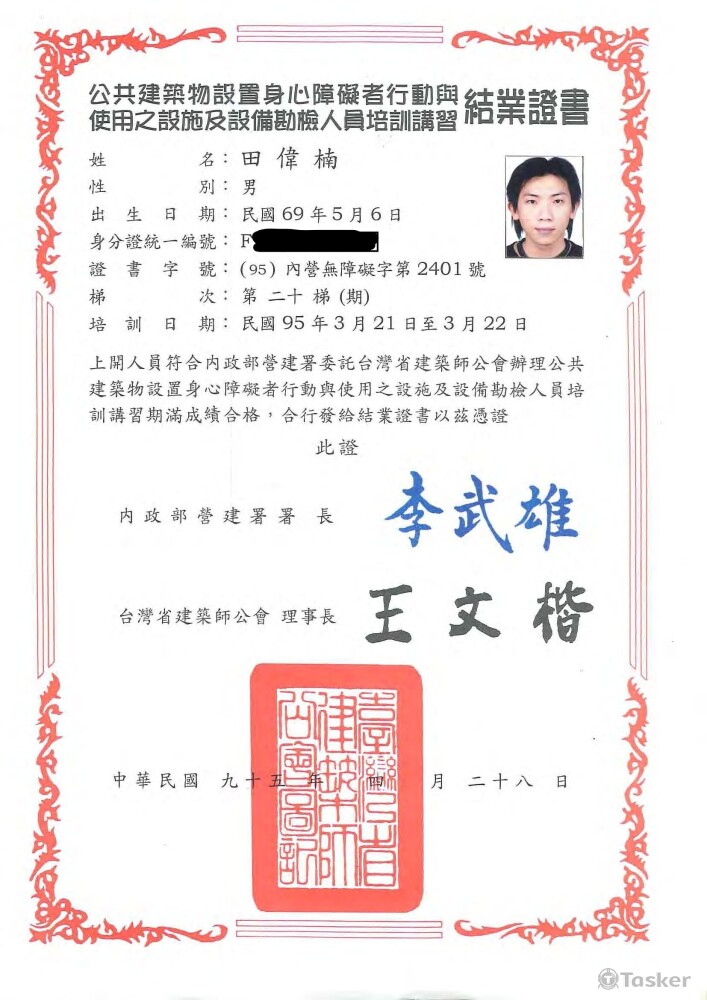 公共建築物設置身心障礙者行動與
使用之設施及設備勘檢人員培訓講習 結業證書
姓 名：田偉楠
性 別：男
出生日期：民國69年5月6日
身分證統一編號：F
證書字號：(95) 內營無障礙字第2401號
梯 次：第 二十 梯 (期)
培訓日期：民國95年3月21日至3月22日
上開人員符合內政部營建署委託台灣省建築師公會辦理公共
建築物設置身心障礙者行動與使用之設施及設備勘檢人員培
訓講習期滿成績合格，合行發給結業證書以茲憑證
此證
內政部營建署署 長 李武雄
台灣省建築師公會 理事長 王文楷
臺灣省
建築師
公會圖記
中華民國 九十五 年 四 月 二十八 日
Tasker